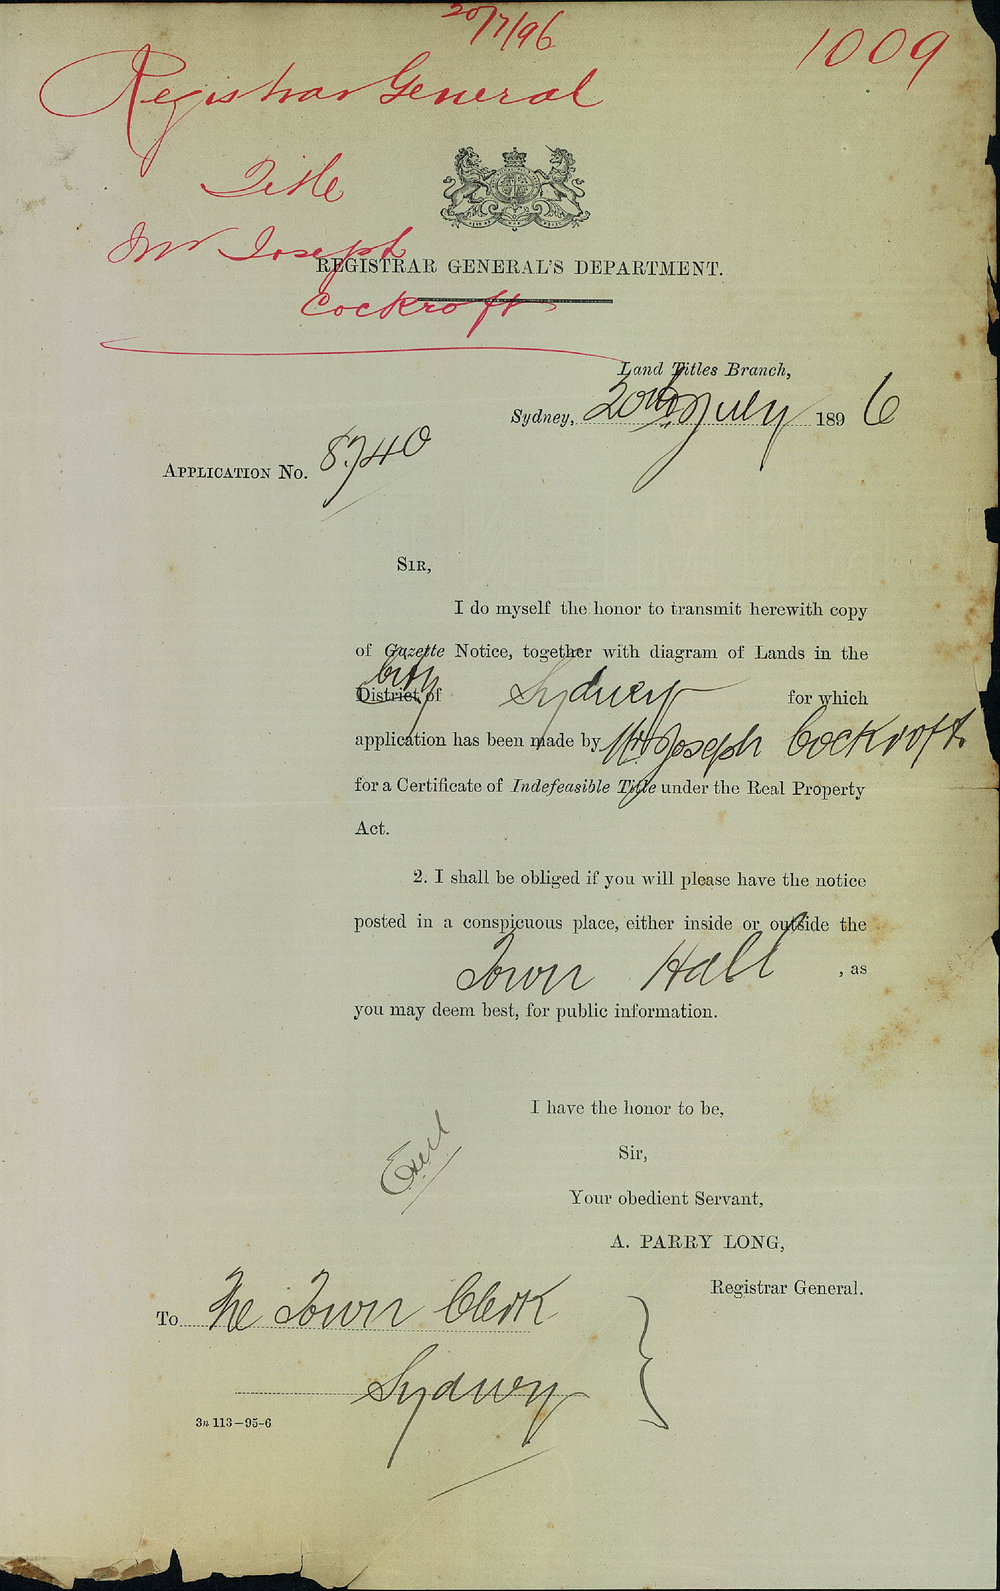 20/7/96
1009
Registrar General
Title
Mr Joseph
Cockroft
REGISTRAR GENERAL'S DEPARTMENT.
Land Titles Branch,
Sydney, 20th July 1896
APPLICATION No. 8740
SIR,
I do myself the honor to transmit herewith copy
of Gazette Notice, together with diagram of Lands in the
City
District of Sydney for which
application has been made by Mr Joseph Cockroft
for a Certificate of Indefeasible Title under the Real Property
Act.
2. I shall be obliged if you will please have the notice
posted in a conspicuous place, either inside or outside the
Town Hall, as
you may deem best, for public information.
I have the honor to be,
Sir,
Your obedient Servant,
A. PARRY LONG,
Registrar General.
To The Town Clerk
Sydney
3n 113—95-6